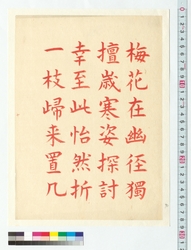 梅花在幽徑獨
擅歳寒姿探討
幸至此怡然折
一枝歸来置几